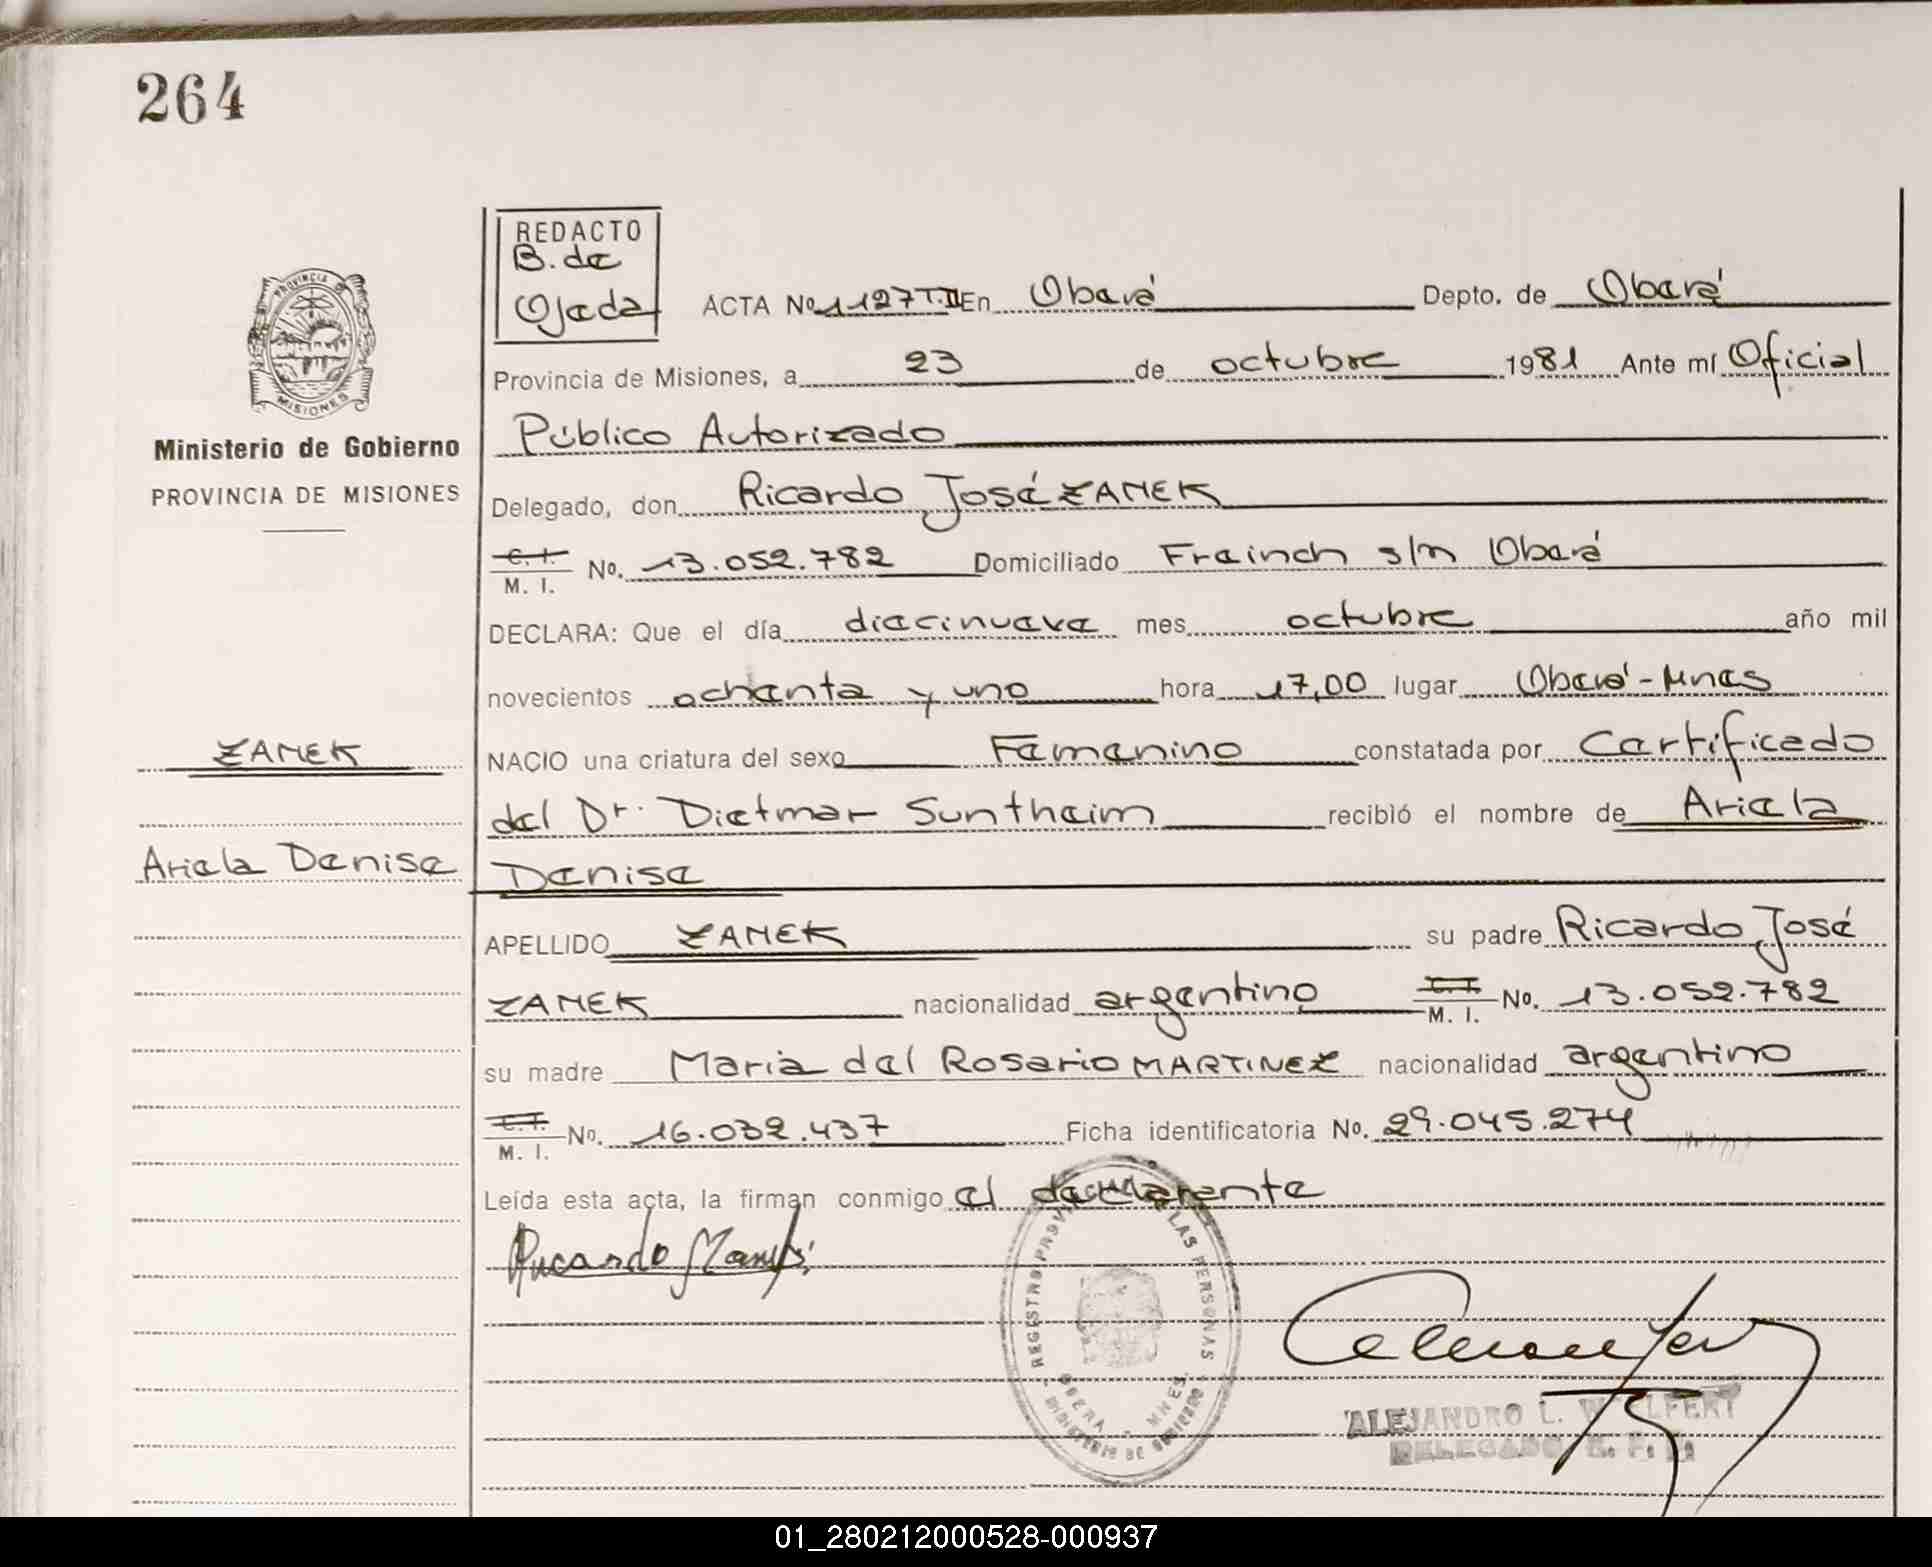 264
REDACTO
B. de
Ojeda
ACTA No. 1127 T.II En Oberá Depto. de Oberá
Provincia de Misiones, a 23 de octubre 1981 Ante mí Oficial
Ministerio de Gobierno
Público Autorizado
PROVINCIA DE MISIONES
Delegado, don Ricardo José ZAMEK
C. I.
M. I. No. 13.052.782 Domiciliado Freinch s/n Oberá
DECLARA: Que el día diecinueve mes octubre año mil
novecientos ochenta y uno hora 17,00 lugar Oberá-Mnes
ZAMEK
NACIO una criatura del sexo Femenino constatada por Certificado
del Dr. Dietmar Suntheim recibió el nombre de Ariela
Ariela Denise
Denise
APELLIDO ZAMEK su padre Ricardo José
ZAMEK nacionalidad argentino C. I. M. I. No. 13.052.782
su madre Maria del Rosario MARTINEZ nacionalidad argentino
C. I. M. I. No. 16.032.437 Ficha identificatoria No. 29.045.274
Leída esta acta, la firman conmigo el declarente
Ricardo
REGISTRO PROVINCIAL DE LAS PERSONAS
OBERA - MNES.
MINISTERIO DE GOBIERNO
ALEJANDRO L. WELFERT
DELEGADO R. P. P.
PROVINCIA DE
MISIONES
01_280212000528-000937